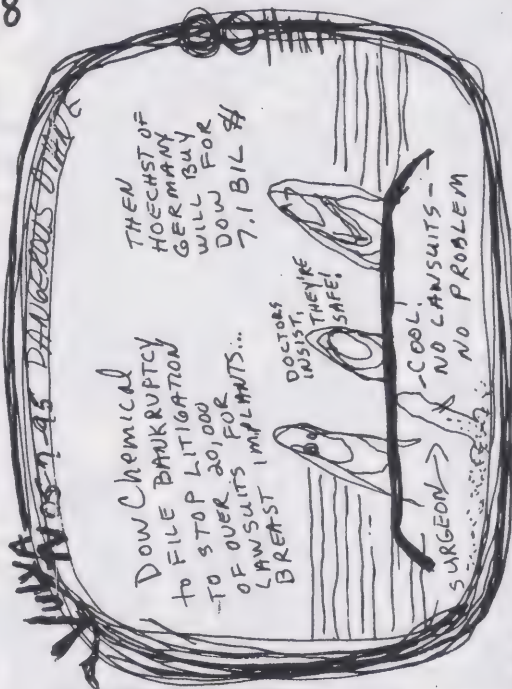 8
05-7-95 DANGEROUS
Dow Chemical
to FILE BANKRUPTCY
TO STOP LITIGATION
OF OVER 20,000
LAWSUITS FOR
BREAST IMPLANTS...
THEN
HOECHST OF
GERMANY
WILL BUY
DOW FOR
7.1 BIL $
DOCTORS
INSIST,
THEY'RE
SAFE!
SURGEON →
-COOL.
NO LAWSUITS-
NO PROBLEM